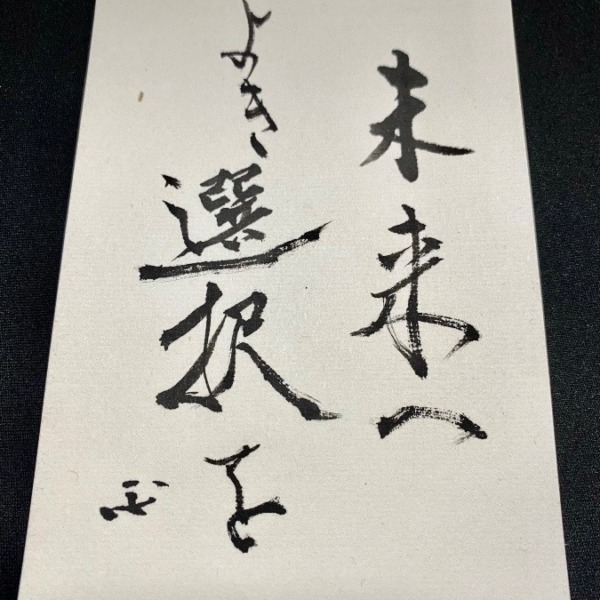 未来へ
よき選択を